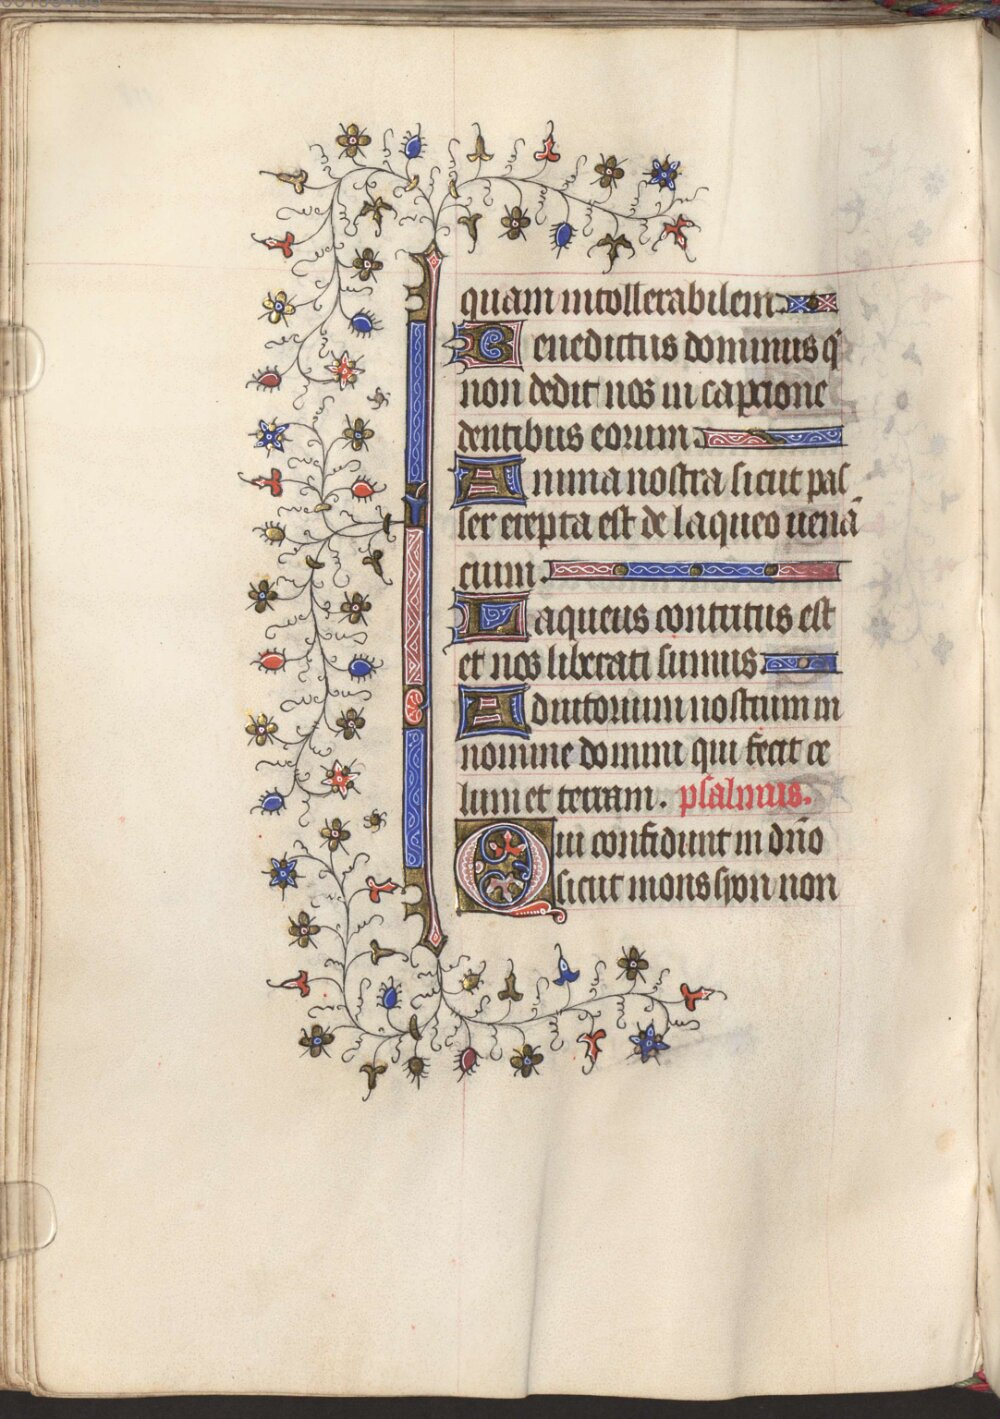 quam intollerabilem
Benedictus dominus q̇
non dedit nos in capcione
dentibus eorum
Anima nostra sicut pas
ser erepta est de laqueo uenā
cium.
Laqueus contritus est
et nos liberati sumus
Adiutorium nostrum in
nomine domini qui fecit ce
lum et terram. psalmus.
Qui confidunt in dn̄o
sicut mons syon non